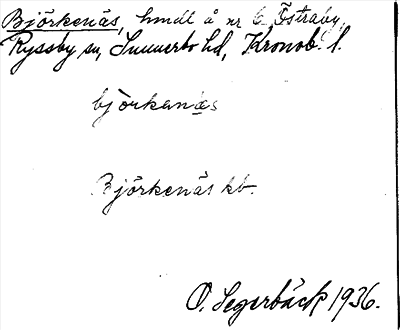 Björkenäs, hmdl å nr 6 Östraby,
Ryssby sn, Sunnerbo hd, Kronob. l.
björkanäs
Björkenäs kb.
O. Segerbäck 1936.